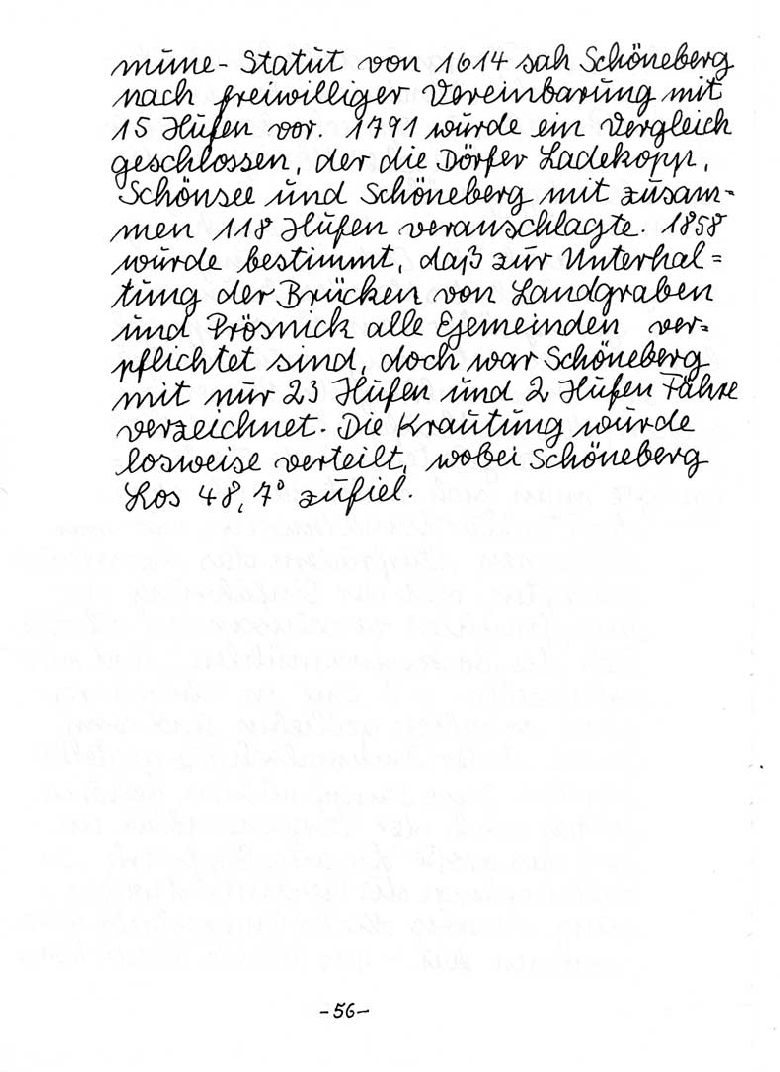 müne- Statut von 1614 sah Schöneberg
nach freiwilliger Vereinbarung mit
15 Hufen vor. 1791 wurde ein Vergleich
geschlossen, der die Dörfer Ladekopp,
Schönsee und Schöneberg mit zusam=
men 118 Hufen veranschlagte. 1858
wurde bestimmt, daß zur Unterhal=
tung der Brücken von Landgraben
und Prösnick alle Gemeinden ver=
pflichtet sind, doch war Schöneberg
mit nur 23 Hufen und 2 Hufen Fähre
verzeichnet. Die Krautung wurde
losweise verteilt, wobei Schöneberg
Los 48, 7° zufiel.
-56-